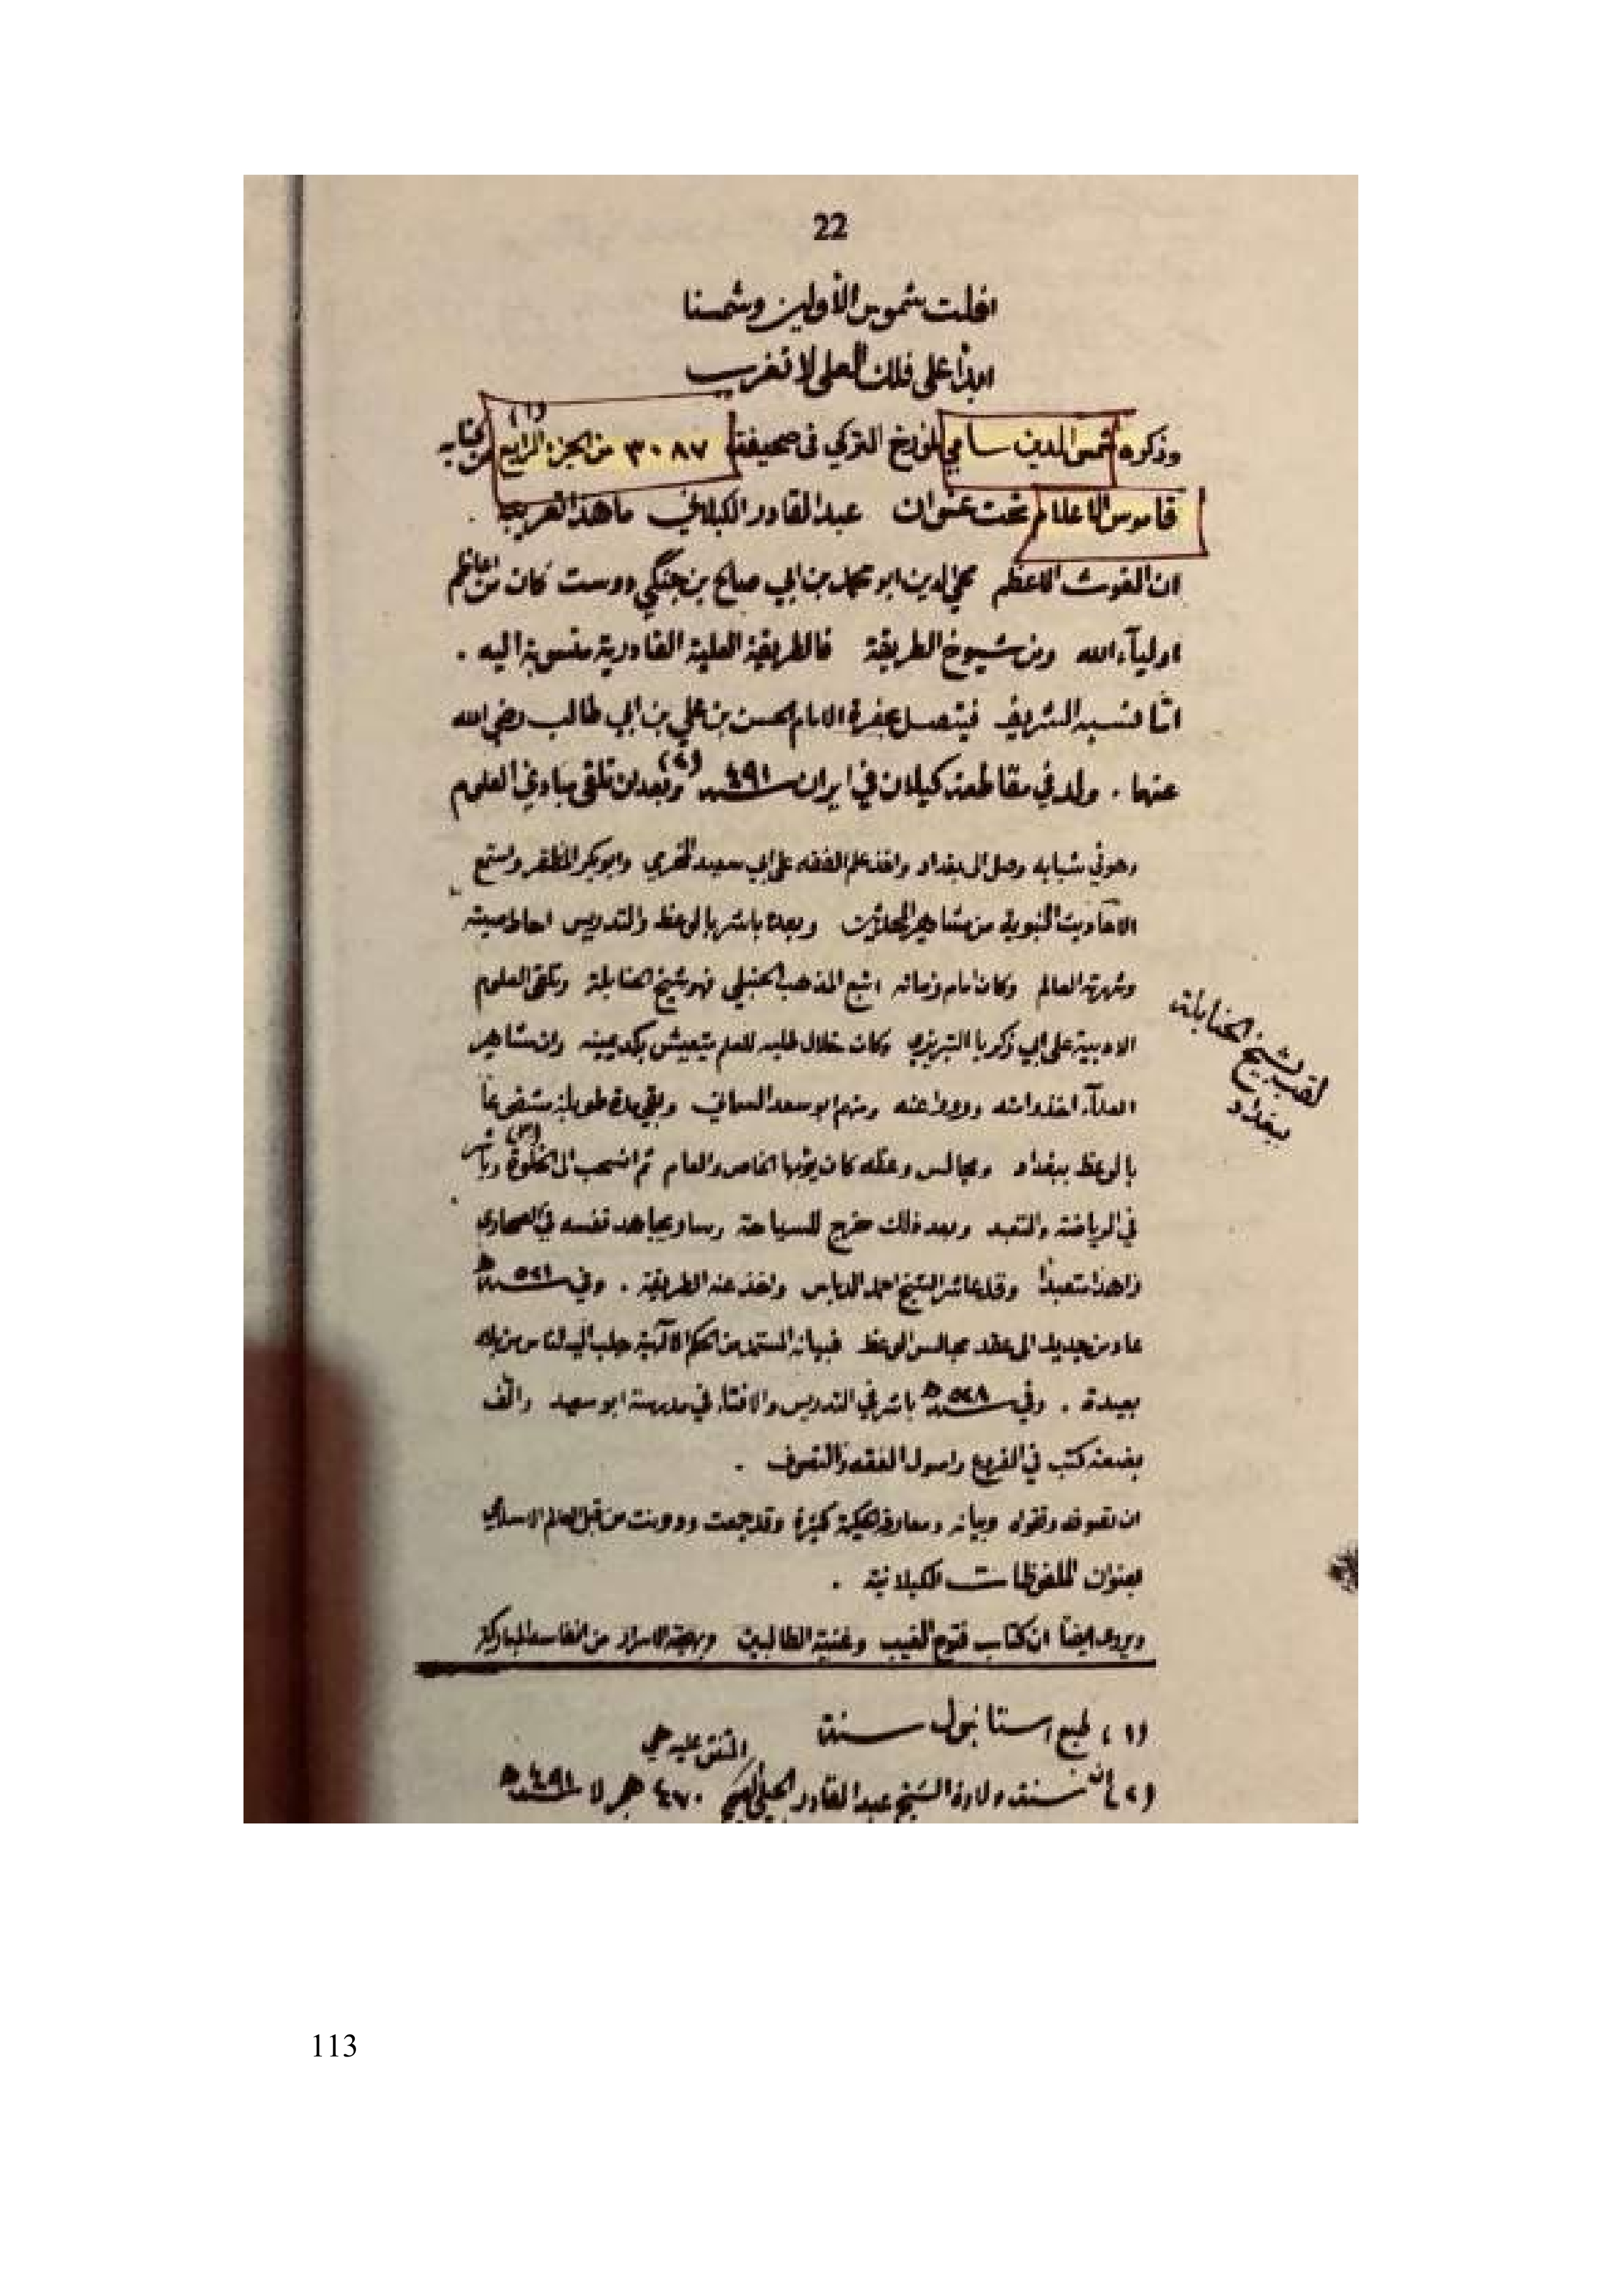 22
افلت شموس الأولين وشمسنا
ابداً على فلك العلى لا تغرب
وذكره شمس الدين سامي المؤرخ التركي في صحيفة ٣٠٨٧ من الجزء الرابع (١) من كتابه
قاموس الاعلام تحت عنوان عبد القادر الكيلاني ما هذا تعريبه .
ان الغوث الاعظم محي الدين ابو محمد بن ابي صالح بن جنگي دوست كان من اعاظم
اولياء الله ومن شيوخ الطريقة فالطريقة العلية القادرية منسوبة اليه .
امّا نسبه الشريف فيتصل بحضرة الامام الحسن بن علي بن ابي طالب رضي الله
عنهما . ولد في مقاطعة كيلان في ايران سنة ٤٩١ (٢) وبعد ان تلقى مبادئ العلوم
وهو في شبابه وصل الى بغداد واخذ علم الفقه على ابي سعيد المخرمي وابو بكر المظفر واستمع
الاحاديث النبوية من مشاهير المحدثين وبعدما باشر بالوعظ والتدريس احاط صيته
وشهرته العالم وكان امام زمانه اتبع المذهب الحنبلي فهو شيخ الحنابلة وتلقى العلوم
الادبية على ابي زكريا التبريزي وكان خلال طلبه للعلم يتعيش بكد يمينه وان مشاهير
العلماء اخذوا منه ورووا عنه ومنهم ابو سعد السمعاني وبقي مدة طويلة
بالوعظ ببغداد ومجالس وعظه كان يؤمها الخاص والعام ثم انسحب الى الخلوة (٣) وباشر
في الرياضة والتعبد وبعد ذلك خرج للسياحة وسار يجاهد نفسه في الصحاري
زاهداً متعبداً وقد عاشر الشيخ احمد الدباس واخذ عنه الطريقة . وفي سنة ٥٢١ هـ
عاد من جديد الى عقد مجالس الوعظ فبيانه المستمد من الحكم الالهية جلب اليه الناس من بلاد
بعيدة . وفي سنة ٥٢٨ هـ باشر في التدريس والافتاء في مدرسة ابو سعيد والّف
بضعة كتب في الفروع واصول الفقه والتصوف .
ان تصوفه وتقواه وبيانه ومعارفه الحكيمة كثيرة وقد جمعت ودونت من قبل العالم الاسلامي
بعنوان الملفوظات الكيلانية .
ويروى ايضاً ان كتاب فتوح الغيب وغنية الطالبين وبهجة الاسرار من انفاسه المباركة
لقب بشيخ الحنابلة
ببغداد
(١) طبع استانبول سنة
المتفق عليه هي
(٢) ان سنة ولادة الشيخ عبد القادر الجيلي ٤٧٠ هجر لا سنة ٤٩١ هـ
113